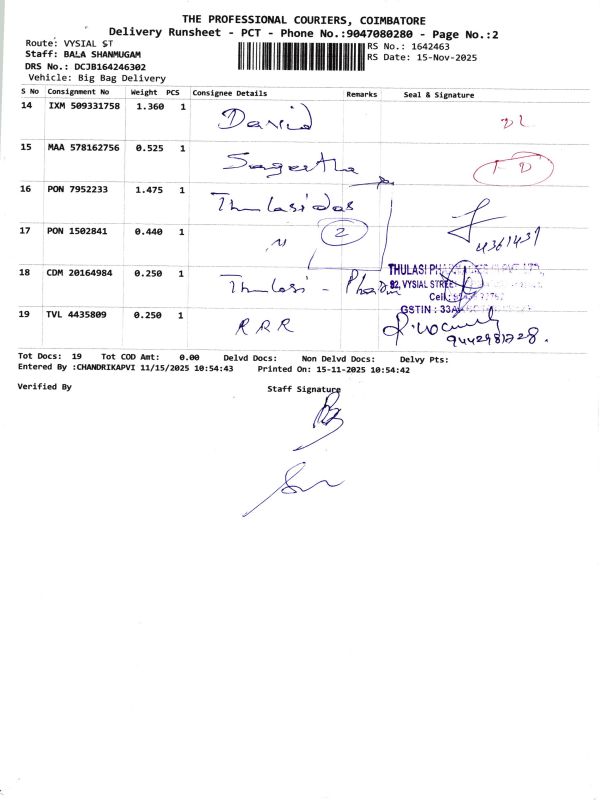 THE PROFESSIONAL COURIERS, COIMBATORE
Delivery Runsheet - PCT - Phone No.:9047080280 - Page No.:2
Route: VYSIAL ST
RS No.: 1642463
Staff: BALA SHANMUGAM
RS Date: 15-Nov-2025
DRS No.: DCJB164246302
Vehicle: Big Bag Delivery
S No Consignment No Weight PCS Consignee Details Remarks Seal & Signature
14 IXM 509331758 1.360 1 David
15 MAA 578162756 0.525 1 Sageetha
16 PON 7952233 1.475 1 Thulasidas
17 PON 1502841 0.440 1 " 2 4361437
18 CDM 20164984 0.250 1 Thulasi - Pharm
THULASI
82, VYSIAL STREET
Cell:
GSTIN : 33A
19 TVL 4435809 0.250 1 RRR
9442981728.
Tot Docs: 19 Tot COD Amt: 0.00 Delvd Docs: Non Delvd Docs: Delvy Pts:
Entered By :CHANDRIKAPVI 11/15/2025 10:54:43 Printed On: 15-11-2025 10:54:42
Verified By Staff Signature